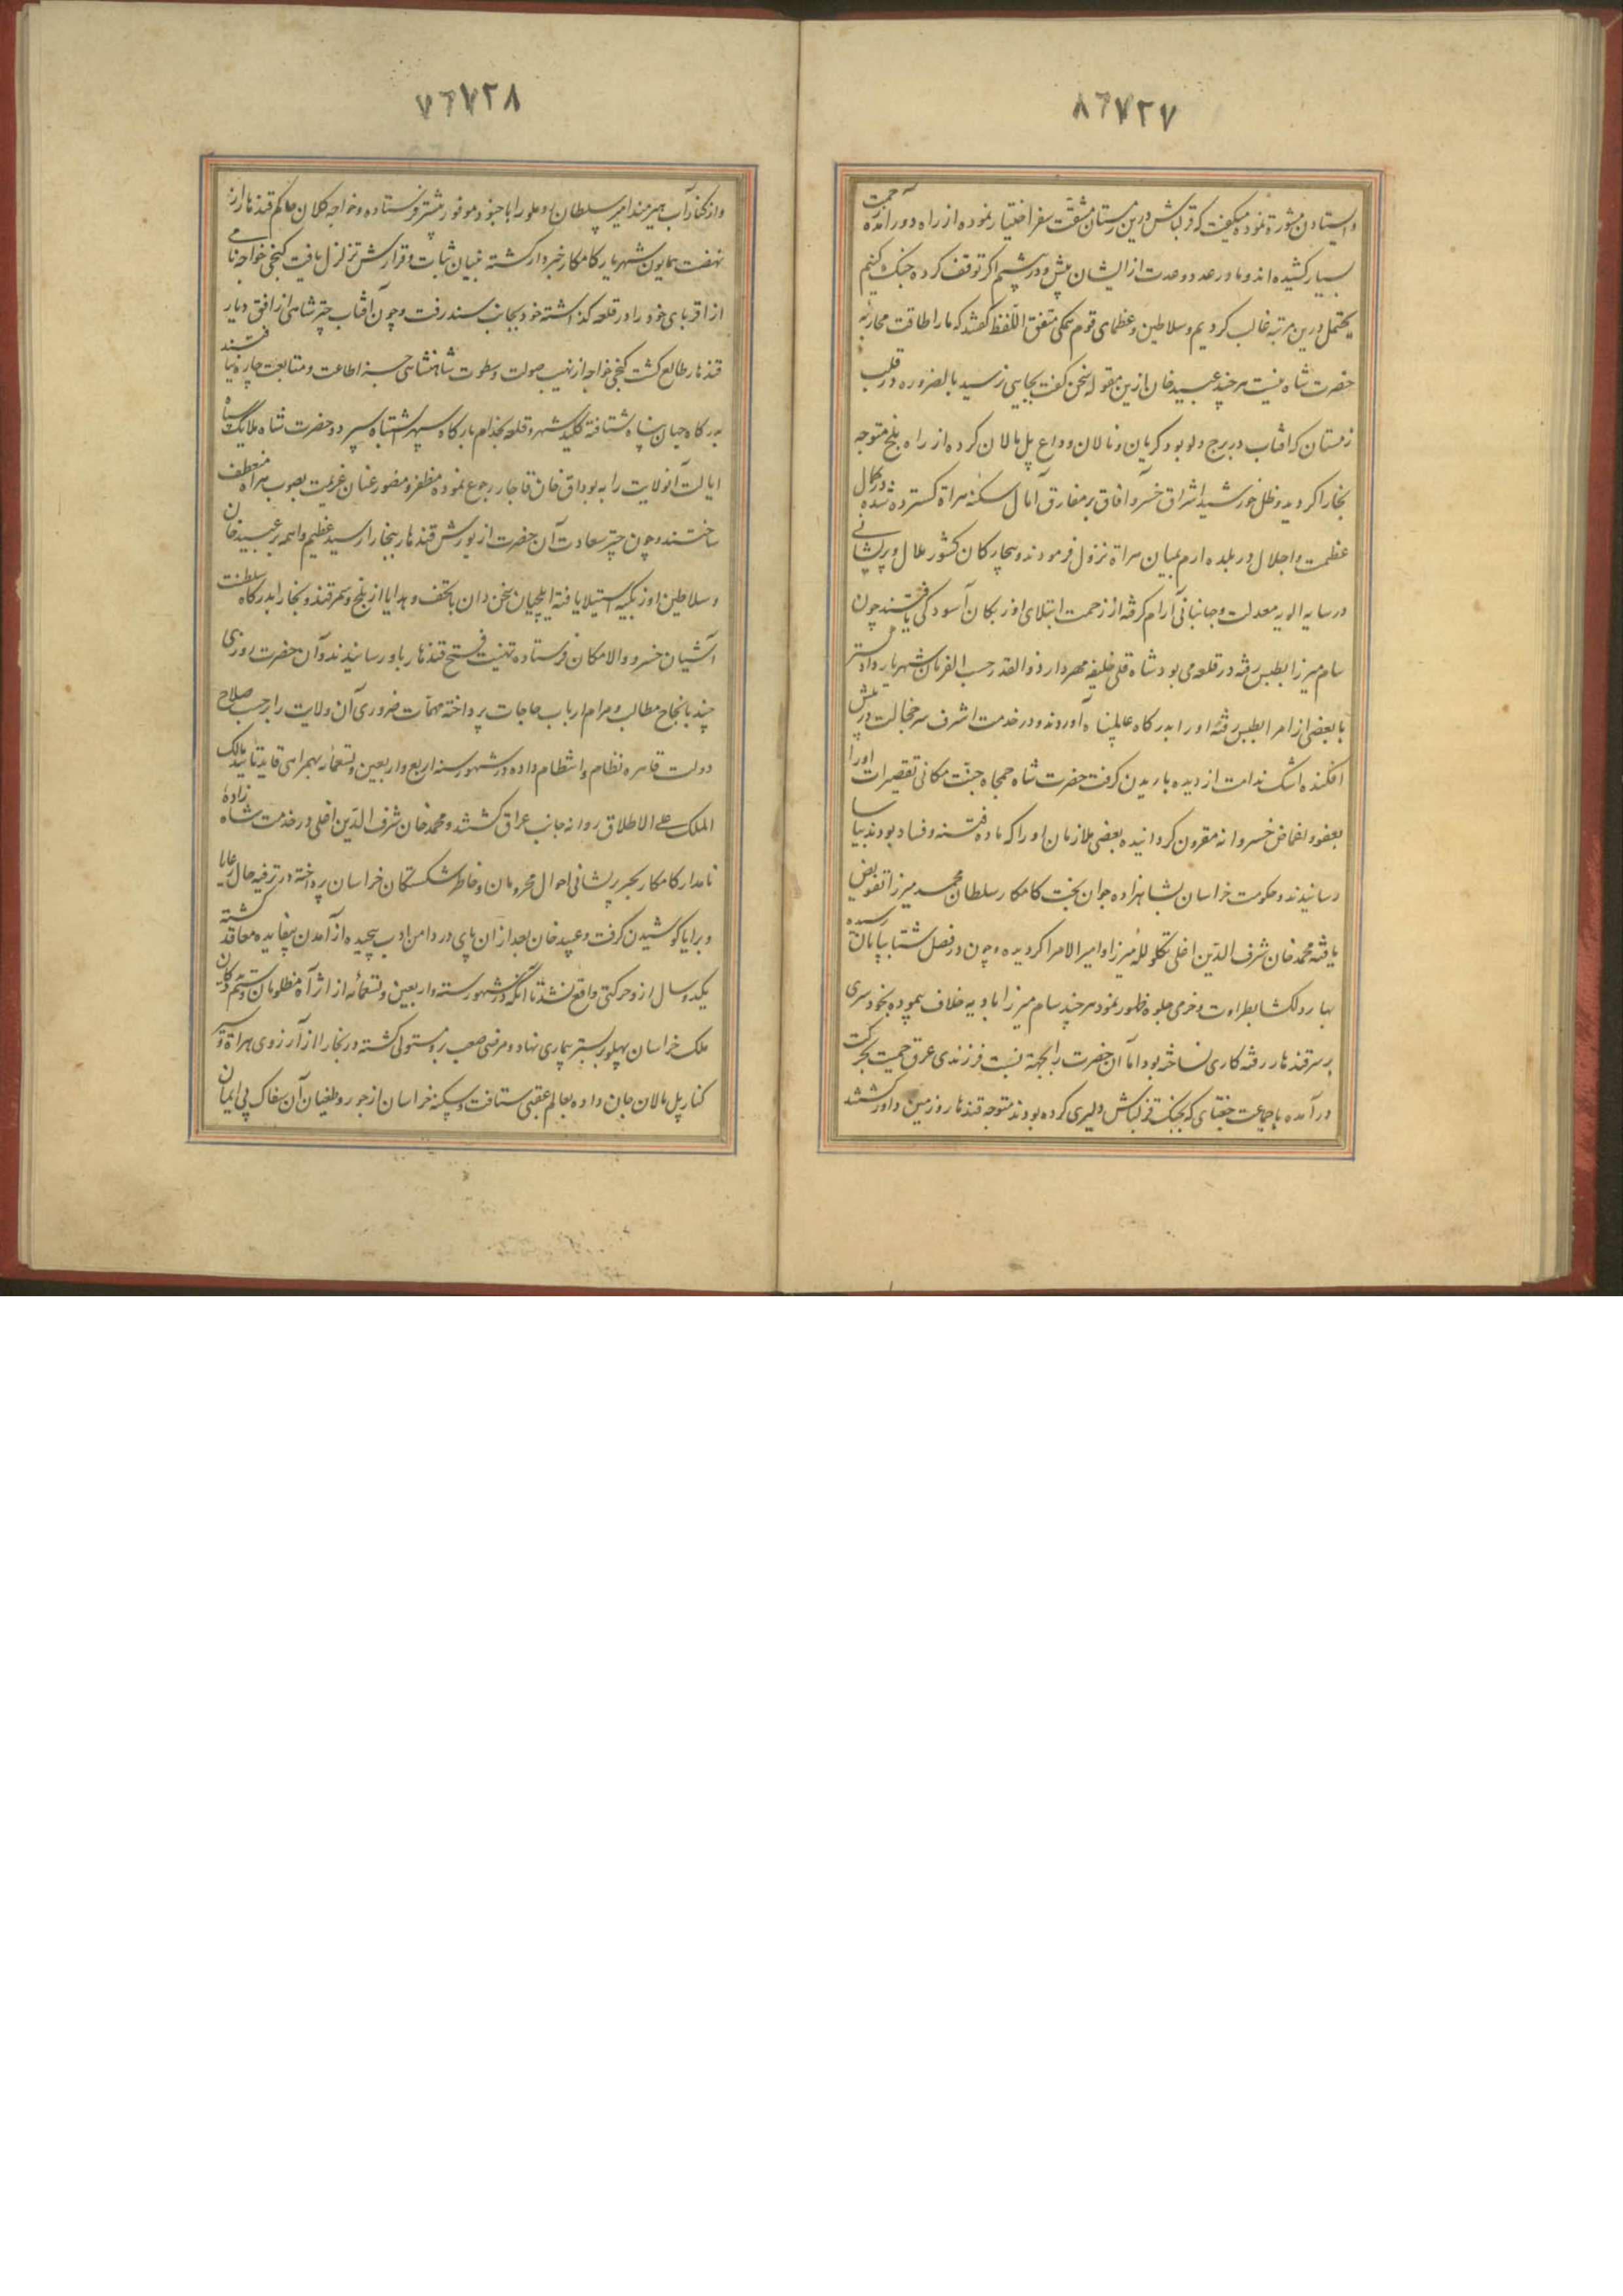 ۸۶۷۲۷
و ایستادن مشورة نموده میگفت که قزلباش درین زمستان مشقت سفر اختیار نموده از راه دور آمده زحمت
بسیار کشیده اند و ما در عدد و عدت از ایشان بیش و در پیشیم اگر توقف کرده جنک کنیم
یحتمل درین مرتبه غالب کردیم و سلاطین و عظمای قوم همکی متفق اللفظ کفتند که ما را طاقت محاربه
حضرت شاه نیست هر چند عبید خان ازین مقوله سخن کفت بجایی نرسید بالضروره در قلب
زمستان که افتاب در برج دلو بود کریان و نالان وداع پل مالان کرده از راه بلخ متوجه
بخارا کردید و ظل خورشید اشراق خسرو آفاق بر مفارق آمال سکنه هراة کسترده شده در کمال
عظمت و اجلال در بلده ارم بنیان هراة نزول فرمودند و بیچارکان کشور ملال و پریشانی
در سایه الویه معدلت و جهانبانی آرام کرفته از زحمت ابتلای اوزبکان آسودکی یافتند چون
سام میرزا بطبس رفته در قلعه می بود شاه قلی خلیفه مهردار ذوالقدر حسب الفرمان شهریار داد کستر
با بعضی از امرا بطبس رفته او را بدرکاه عالم پناه آوردند و در خدمت اشرف سر خجالت در پیش
افکنده اشک ندامت از دیده باریدن کرفت حضرت شاه جمجاه جنت مکانی تقصیرات او را
بعفو و اغماض خسروانه مقرون کردانیده بعضی ملازمان او را که ماده فتنه و فساد بودند بیاسا
رسانیدند و حکومت خراسان بشاهزاده جوان بخت کامکار سلطان محمد میرزا تفویض
یافته محمد خان شرف الدین اغلی تکلو لله میرزا و امیر الامرا کردیده و چون فصل شتا بپایان رسیده
بهار دلکشا بطراوت و خرمی جلوه ظهور نمود هر چند سام میرزا بادیه خلاف پیموده بخودسری
بر سر قندهار رفته کاری نساخته بود اما آن حضرت را بجهة نسبت فرزندی عرق حمیت بحرکت
در آمده با جماعت جغتای که بجنک قزلباش دلیری کرده بودند متوجه قندهار و زمین داور کشتند
۷۶۷۲۸
و از کنار آب هیرمند امیر سلطان روملو را با جنود موفور پیشتر فرستاده و خواجه کلان حاکم قندهار از
نهضت همایون شهریار کامکار خبردار کشته بنیان ثبات و قرارش تزلزل یافت کنجی خواجه نامی
از اقربای خود را در قلعه کذاشته خود بجانب سند رفت و چون آفتاب چتر شاهی از افق دیار
قندهار طالع کشت کنجی خواجه از نهیب صولت و سطوت شاهنشاهی جز اطاعت و متابعت چاره نیافتند
بدرکاه جهان پناه شتافته کلید شهر و قلعه بخدام بارکاه سپهر اشتباه سپرد و حضرت شاه ملایک سپاه
ایالت آنولایت را به بوداق خان قاجار رجوع نموده مظفر و منصور عنان عزیمت بصوب هراة منعطف
ساختند و چون چتر سعادت آن حضرت از یورش قندهار ببخارا رسید عظیم واهمه بر عبید خان
و سلاطین اوزبکیه استیلا یافته ایلچیان سخن دان با تحف و هدایا از بلخ و سمرقند و بخارا بدرکاه سلطنت
آشیان خسرو والا مکان فرستاده تهنیت فتح قندهار باو رسانیدند و آن حضرت روزی
چند بانجاح مطالب و مرام ارباب حاجات پرداخته مهمات ضروری آن ولایت را بر حسب صلاح
دولت قاهره نظام و انتظام داده در شهور سنه اربع و اربعین و تسعمائه بهمراهی قاید تایید مالک
الملک علی الاطلاق روانه جانب عراق کشتند و محمد خان شرف الدین اغلی در خدمت شاه زاده
نامدار کامکار بجبر پریشانی احوال محرومان و خاطر شکستکان خراسان پرداخته در ترفیه حال رعایا
و برایا کوشیدن کرفت و عبید خان بعد از ان پای در دامن ادب پیچیده از آمدن بیفایده معاقد کشته
یکدو سال از و حرکتی واقع نشد تا آنکه در شهور سنه و اربعین و تسعمائه از اثر آه مظلومان و ستم دیدکان
ملک خراسان پهلو بر بستر بیماری نهاد و مرضی صعب برو مستولی کشته در بخارا از آرزوی هراة و سیر
کنار پل مالان جان داده بعالم عقبی شتافت و سکنه خراسان از جور و طغیان آن سفاک بی ایمان